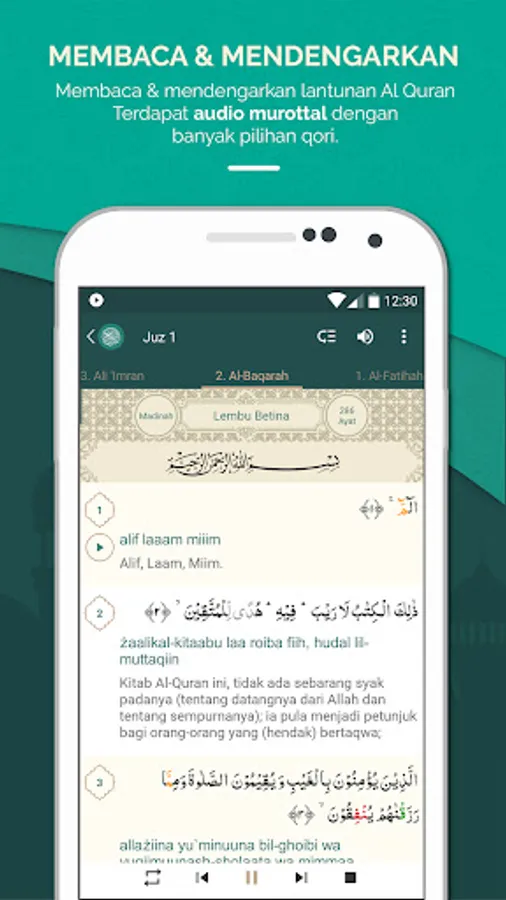 MEMBACA & MENDENGARKAN
Membaca & mendengarkan lantunan Al Quran
Terdapat audio murottal dengan
banyak pilihan qori.
12:30
Juz 1
3. Ali 'Imran
2. Al-Baqarah
1. Al-Fatihah
Madinah
Lembu Betina
286
Ayat
بِسْمِ اللهِ الرَّحْمٰنِ الرَّحِيْمِ
1
الۤمّۤ ۚ ﴿١﴾
alif laaam miiim
Alif, Laam, Miim.
2
ذٰلِكَ الْكِتٰبُ لَا رَيْبَ ۛ فِيْهِ ۛ هُدًى لِّلْمُتَّقِيْنَ ۙ ﴿٢﴾
żaalikal-kitaabu laa roiba fiih, hudal lil-
muttaqiin
Kitab Al-Quran ini, tidak ada sebarang syak
padanya (tentang datangnya dari Allah dan
tentang sempurnanya); ia pula menjadi petunjuk
bagi orang-orang yang (hendak) bertaqwa;
3
الَّذِيْنَ يُؤْمِنُوْنَ بِالْغَيْبِ وَيُقِيْمُوْنَ الصَّلٰوةَ وَمِمَّا
رَزَقْنٰهُمْ يُنْفِقُوْنَ ۙ ﴿٣﴾
allażiina yu`minuuna bil-ghoibi wa
yuqiimuunash-sholaata wa mimmaa